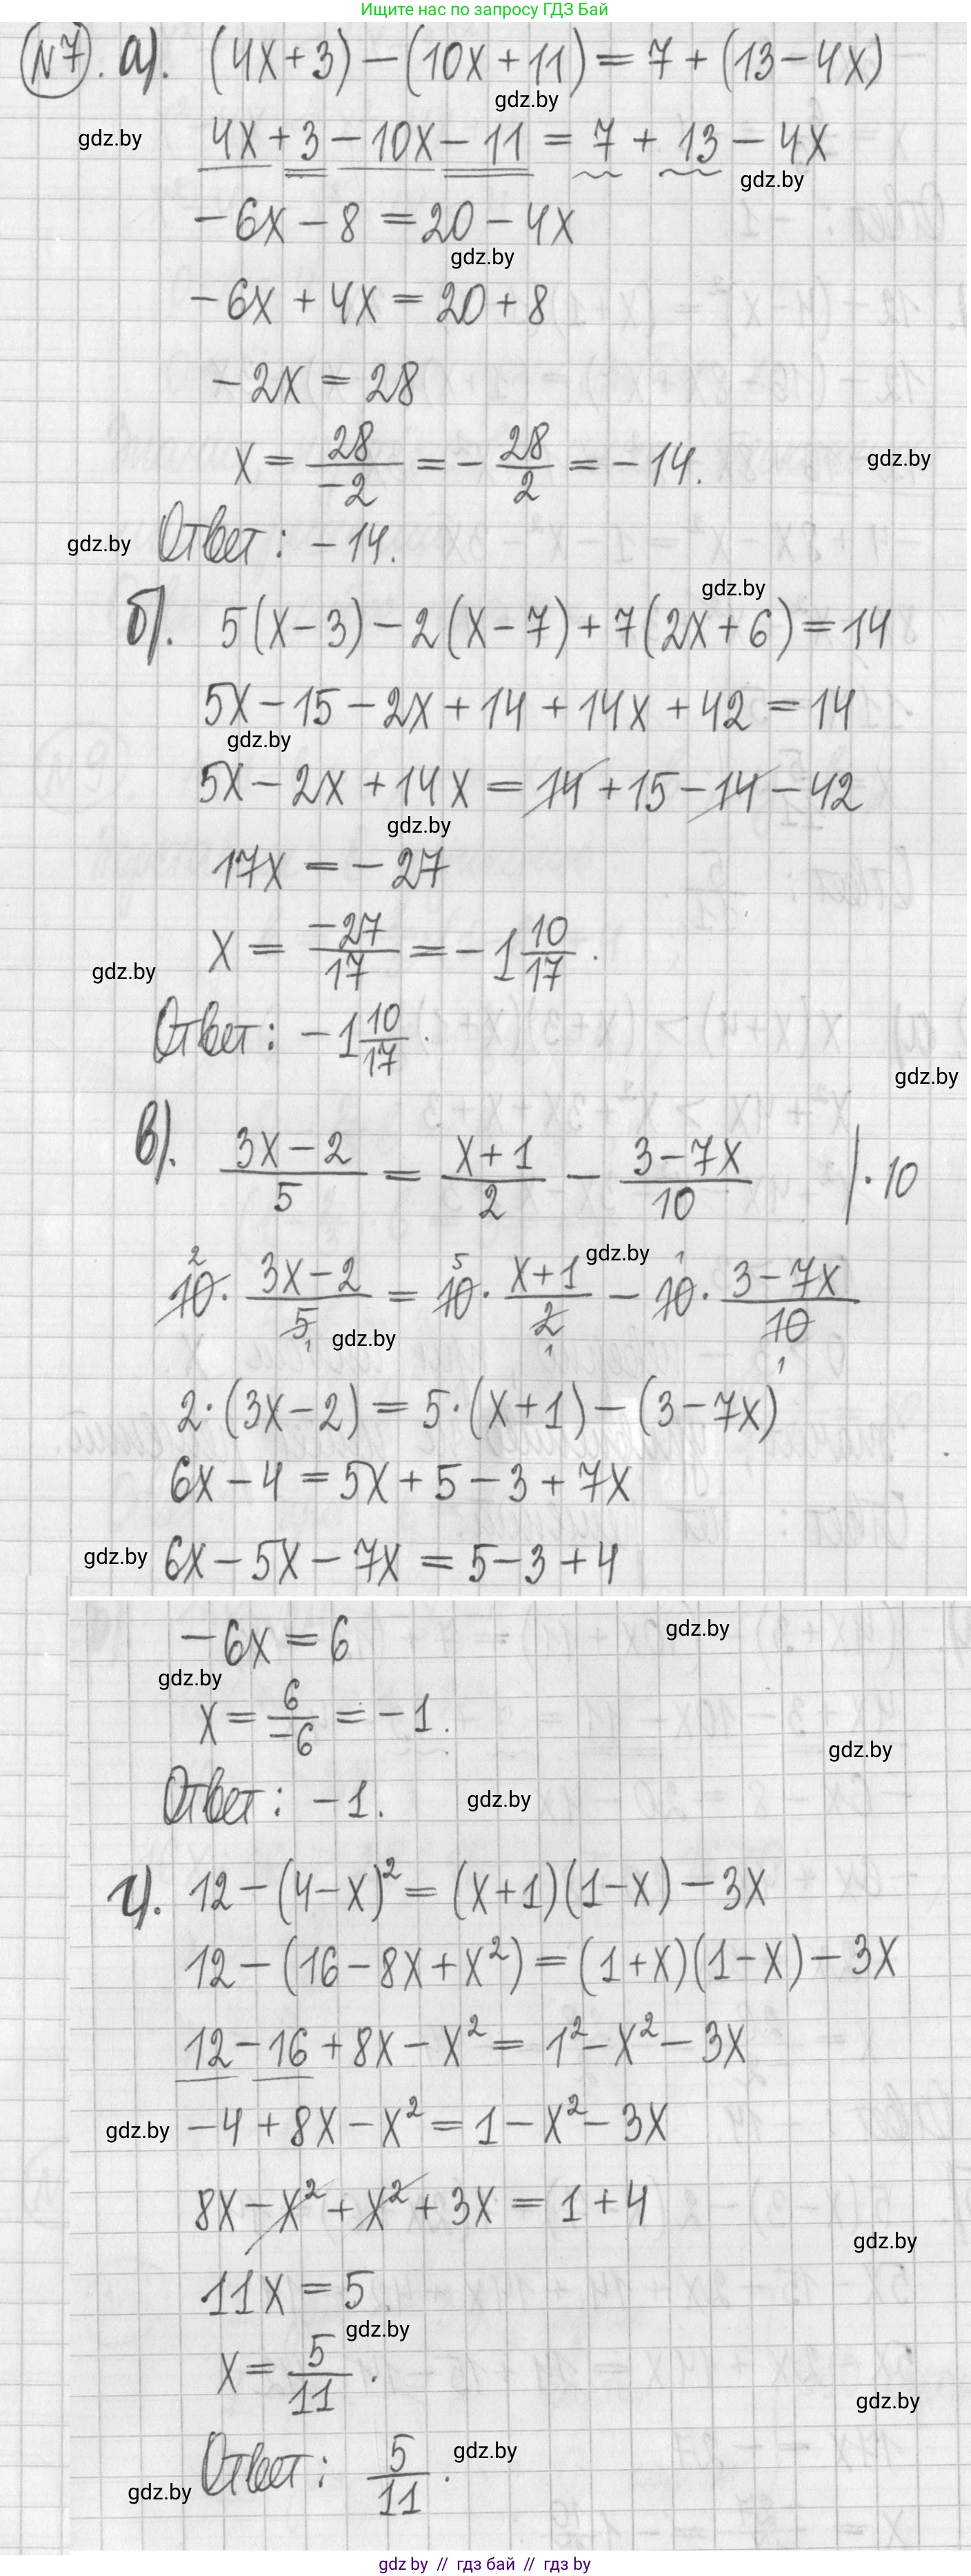 Ищите нас по запросу ГДЗ Бай
№7. а). (4x+3) − (10x+11) = 7 + (13−4x)
gdz.by
gdz.by
4x + 3 − 10x − 11 = 7 + 13 − 4x
gdz.by
−6x − 8 = 20 − 4x
gdz.by
−6x + 4x = 20 + 8
−2x = 28
x = 28/−2 = −28/2 = −14.
gdz.by
gdz.by
Ответ: −14.
gdz.by
б). 5(x−3) − 2(x−7) + 7(2x+6) = 14
5x − 15 − 2x + 14 + 14x + 42 = 14
gdz.by
5x − 2x + 14x = 14 + 15 − 14 − 42
gdz.by
17x = −27
x = −27/17 = −1 10/17.
gdz.by
Ответ: −1 10/17.
gdz.by
в). (3x−2)/5 = (x+1)/2 − (3−7x)/10 | · 10
gdz.by
²10 · (3x−2)/5₁ = ⁵10 · (x+1)/2₁ − ¹10 · (3−7x)/10₁
gdz.by
2·(3x−2) = 5·(x+1) − (3−7x)
6x − 4 = 5x + 5 − 3 + 7x
gdz.by
6x − 5x − 7x = 5 − 3 + 4
gdz.by
−6x = 6
gdz.by
x = 6/−6 = −1.
gdz.by
Ответ: −1.
gdz.by
г). 12 − (4−x)² = (x+1)(1−x) − 3x
12 − (16 − 8x + x²) = (1+x)(1−x) − 3x
12 − 16 + 8x − x² = 1² − x² − 3x
gdz.by
−4 + 8x − x² = 1 − x² − 3x
8x − x² + x² + 3x = 1 + 4
gdz.by
11x = 5
gdz.by
x = 5/11.
gdz.by
Ответ: 5/11.
gdz.by
gdz.by
gdz by // гдз бай // гдз by